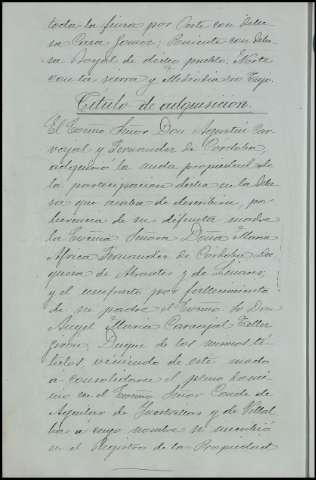 toda la finca por Este con Dehe
sa Para Gomez; Poniente con Dehe
sa Boyal de dicho pueblo; Norte
con la sierra y Mediodia rio Tajo.
Título de adquisición.
El Excmo Señor Don Agustin Car
vajal y Fernandez de Cordoba,
adquirió la nuda propiedad de
la participacion dicha en la Dehe
sa que acaba de describir, por
herencia de su difunta madre
la Excma Señora Doña Maria
Africa Fernandez de Cordoba Du
quesa de Abrantes y de Linares,
y el usufructo por fallecimiento
de su padre el Excmo Sr Don
Angel Maria Carvajal Tellez
Giron, Duque de los mismos tí
tulos, viniendo de este modo
a consolidarse el pleno domi
nio en el Excmo Señor Conde de
Aguilar de Inestrillas y de Villal
ba a cuyo nombre se inscribió
en el Registro de la Propiedad